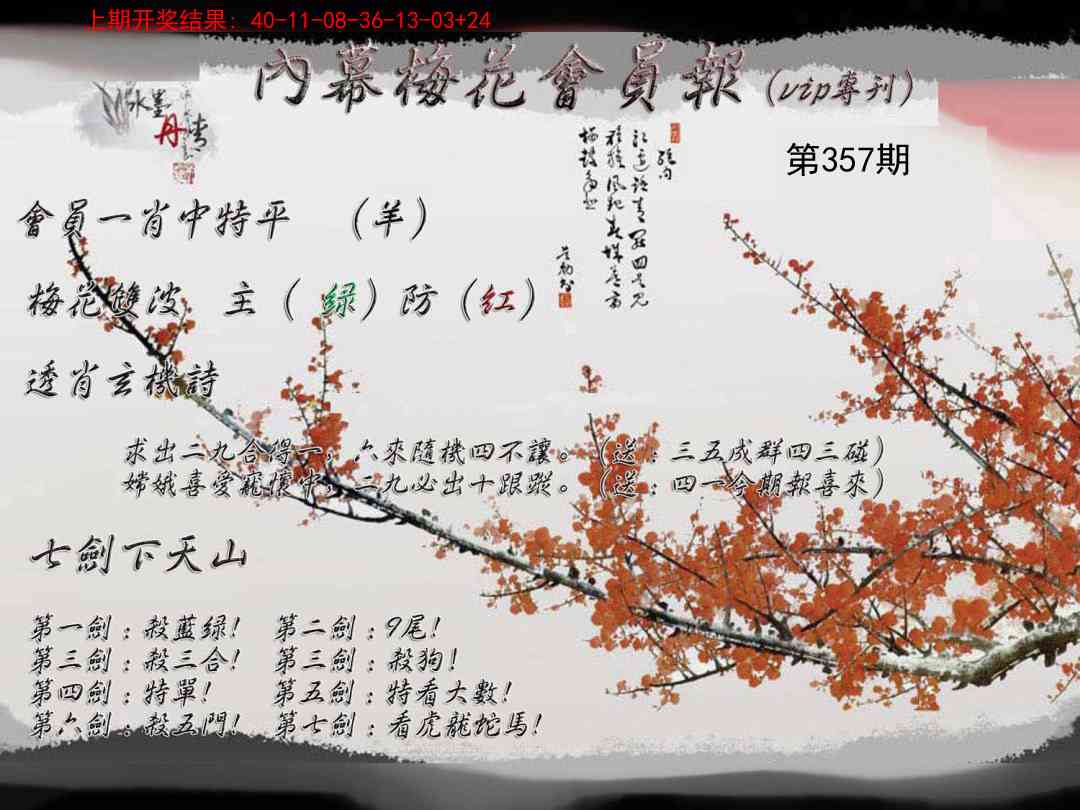 上期开奖结果: 40-11-08-36-13-03+24
內幕梅花會員報(vip專刊)
水墨
丹青
第357期
會員一肖中特平 (羊)
梅花雙波 主(綠)防(紅)
透肖玄機詩
求出二九合得一,六來隨機四不讓。(送:三五成群四三碰)
嫦娥喜愛寵懷中,二九必出十跟蹤。(送:四一今期報喜來)
七劍下天山
第一劍:殺藍绿! 第二劍:9尾!
第三劍:殺三合! 第三劍:殺狗!
第四劍:特單! 第五劍:特看大數!
第六劍:殺五門! 第七劍:看虎龍蛇馬!